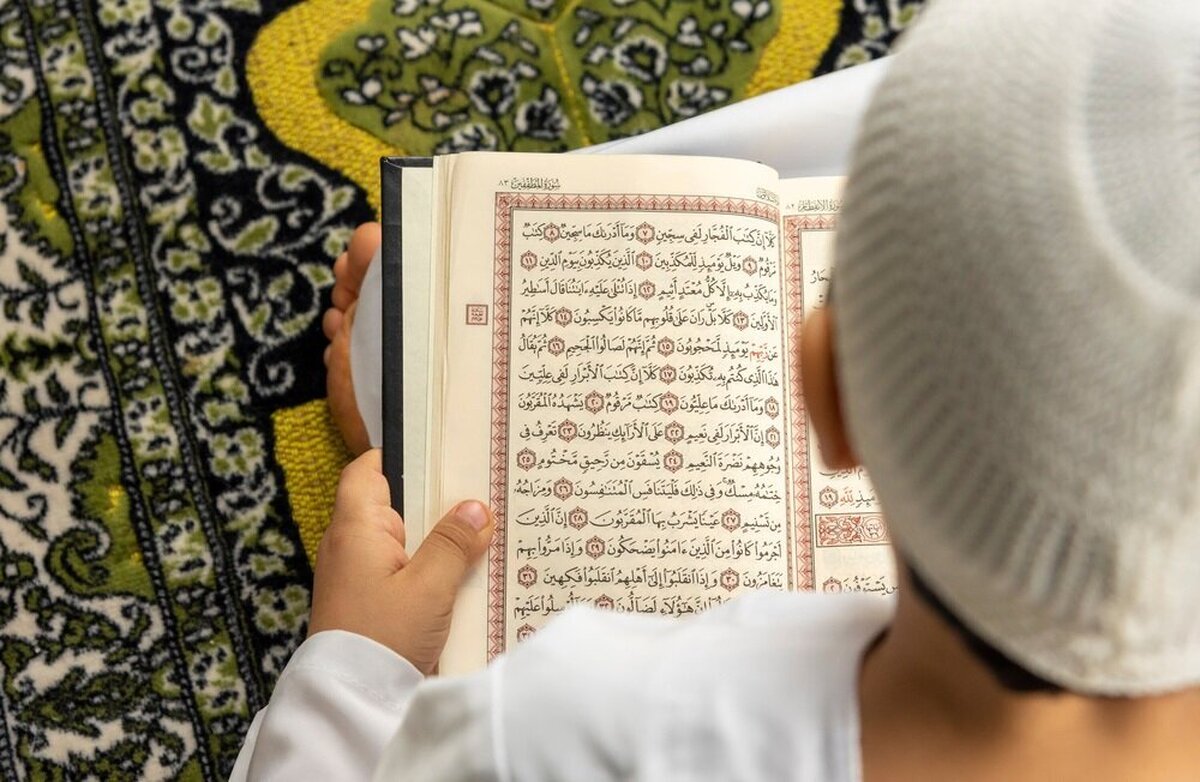 سُورَةُ المُطَفِّفِينَ ٨٣
كَلَّآ إِنَّ كِتَٰبَ ٱلْفُجَّارِ لَفِى سِجِّينٍ ٧ وَمَآ أَدْرَىٰكَ مَا سِجِّينٌ ٨ كِتَٰبٌ
مَّرْقُومٌ ٩ وَيْلٌ يَوْمَئِذٍ لِّلْمُكَذِّبِينَ ١٠ ٱلَّذِينَ يُكَذِّبُونَ بِيَوْمِ ٱلدِّينِ ١١
وَمَا يُكَذِّبُ بِهِۦٓ إِلَّا كُلُّ مُعْتَدٍ أَثِيمٍ ١٢ إِذَا تُتْلَىٰ عَلَيْهِ ءَايَٰتُنَا قَالَ أَسَٰطِيرُ
ٱلْأَوَّلِينَ ١٣ كَلَّا بَلْ رَانَ عَلَىٰ قُلُوبِهِم مَّا كَانُوا۟ يَكْسِبُونَ ١٤ كَلَّآ إِنَّهُمْ
عَن رَّبِّهِمْ يَوْمَئِذٍ لَّمَحْجُوبُونَ ١٥ ثُمَّ إِنَّهُمْ لَصَالُوا۟ ٱلْجَحِيمِ ١٦ ثُمَّ يُقَالُ
هَٰذَا ٱلَّذِى كُنتُم بِهِۦ تُكَذِّبُونَ ١٧ كَلَّآ إِنَّ كِتَٰبَ ٱلْأَبْرَارِ لَفِى عِلِّيِّينَ
١٨ وَمَآ أَدْرَىٰكَ مَا عِلِّيُّونَ ١٩ كِتَٰبٌ مَّرْقُومٌ ٢٠ يَشْهَدُهُ ٱلْمُقَرَّبُونَ
٢١ إِنَّ ٱلْأَبْرَارَ لَفِى نَعِيمٍ ٢٢ عَلَى ٱلْأَرَآئِكِ يَنظُرُونَ ٢٣ تَعْرِفُ فِى
وُجُوهِهِمْ نَضْرَةَ ٱلنَّعِيمِ ٢٤ يُسْقَوْنَ مِن رَّحِيقٍ مَّخْتُومٍ ٢٥
خِتَٰمُهُۥ مِسْكٌ وَفِى ذَٰلِكَ فَلْيَتَنَافَسِ ٱلْمُتَنَٰفِسُونَ ٢٦ وَمِزَاجُهُۥ
مِن تَسْنِيمٍ ٢٧ عَيْنًا يَشْرَبُ بِهَا ٱلْمُقَرَّبُونَ ٢٨ إِنَّ ٱلَّذِينَ
أَجْرَمُوا۟ كَانُوا۟ مِنَ ٱلَّذِينَ ءَامَنُوا۟ يَضْحَكُونَ ٢٩ وَإِذَا مَرُّوا۟ بِهِمْ
يَتَغَامَزُونَ ٣٠ وَإِذَا ٱنقَلَبُوٓا۟ إِلَىٰٓ أَهْلِهِمُ ٱنقَلَبُوا۟ فَكِهِينَ ٣١
إِنَّ هَٰٓؤُلَآءِ لَضَآلُّونَ ٣٢ أُرْسِلُوا۟ عَلَيْهِمْ
سُورَةُ الانفِطَار ٨٢
يَوْمَئِذٍ لِّلَّهِ ١٩
يَسْتَوْفُونَ ٢